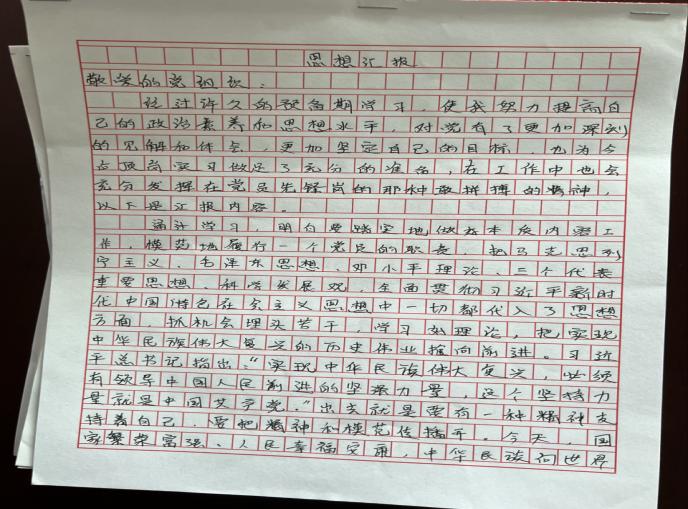 思想汇报
敬爱的党组织：
经过许久的预备期学习，使我努力提高自
己的政治素养和思想水平，对党有了更加深刻
的见解和体会，更加坚定自己的目标，也为今
后顶岗实习做足了充分的准备，在工作中也会
充分发挥在党员先锋岗的那种敢拼搏的精神，
以下是汇报内容。
通过学习，明白要踏实地做好本质内容工
作，模范地履行一个党员的职责，把马克思列
宁主义、毛泽东思想、邓小平理论、三个代表
重要思想、科学发展观，全面贯彻习近平新时
代中国特色社会主义思想中一切都代入了思想
方面，抓机会埋头苦干，学习好理论，把实现
中华民族伟大复兴的历史伟业推向前进。习近
平总书记指出："实现中华民族伟大复兴，必须
有领导中国人民前进的坚强力量，这个坚持力
量就是中国共产党。"出去就是要有一种精神支
持着自己，要把精神和模范传播开。今天，国
家繁荣富强、人民幸福安康，中华民族向世界